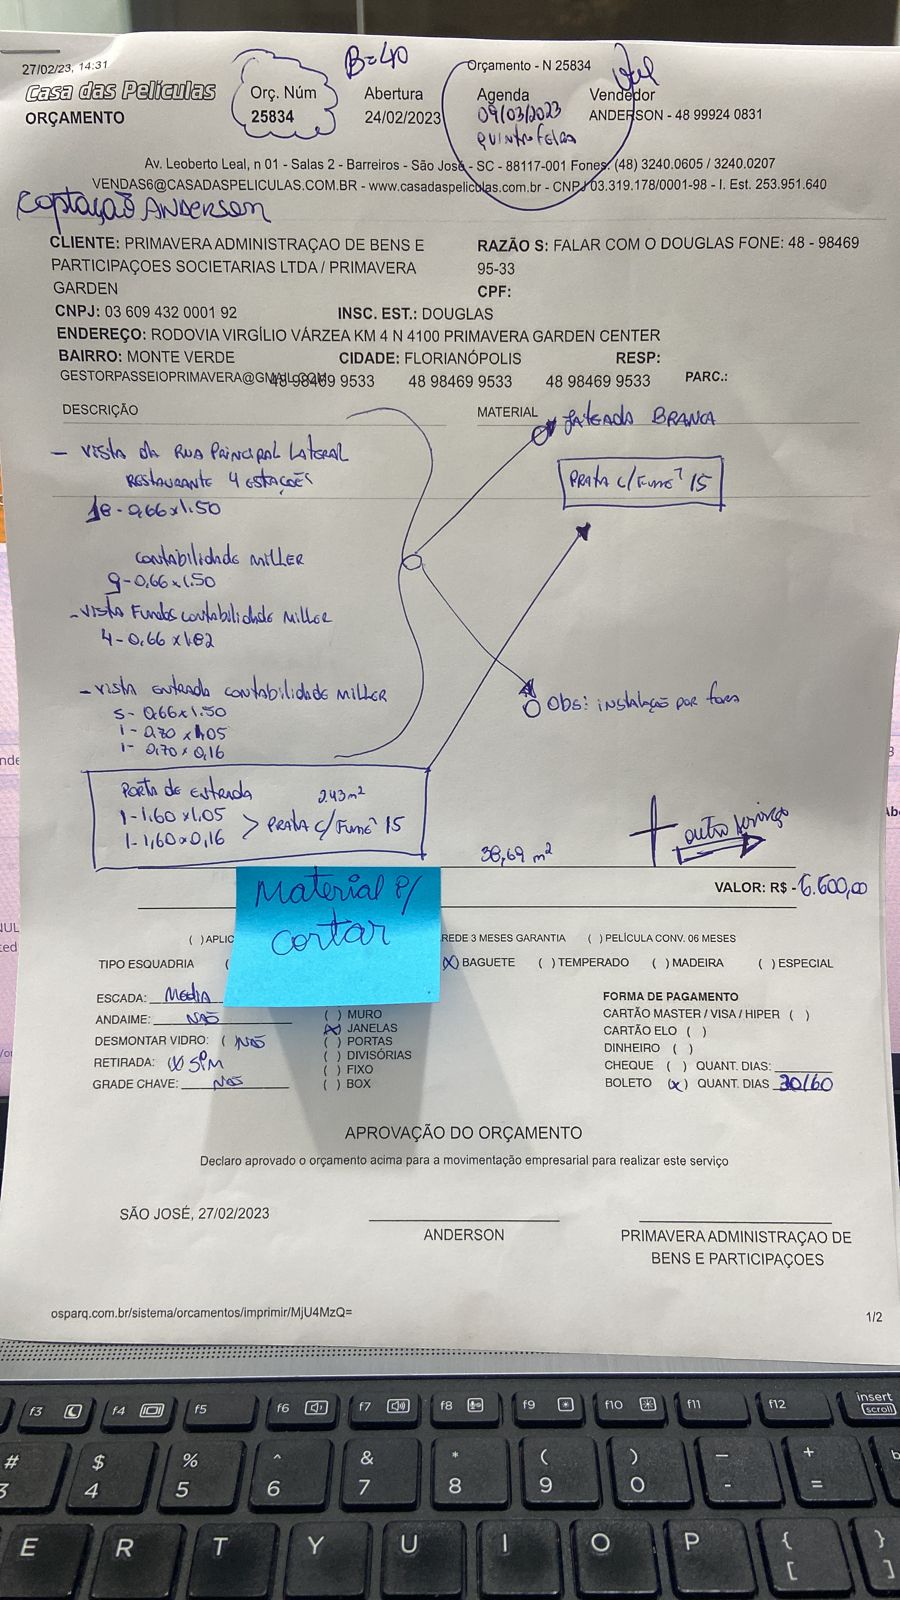 27/02/23, 14:31
B=40
Orçamento - N 25834
Casa das Películas
ORÇAMENTO
Orç. Núm
25834
Abertura
24/02/2023
Agenda
09/03/2023
QUINTA FEIRA
Vendedor
ANDERSON - 48 99924 0831
Av. Leoberto Leal, n 01 - Salas 2 - Barreiros - São José - SC - 88117-001 Fones: (48) 3240.0605 / 3240.0207
VENDAS6@CASADASPELICULAS.COM.BR - www.casadaspeliculas.com.br - CNPJ 03.319.178/0001-98 - I. Est. 253.951.640
Captação ANDERSON
CLIENTE: PRIMAVERA ADMINISTRAÇAO DE BENS E
PARTICIPAÇOES SOCIETARIAS LTDA / PRIMAVERA
GARDEN
RAZÃO S: FALAR COM O DOUGLAS FONE: 48 - 98469
95-33
CPF:
CNPJ: 03 609 432 0001 92
INSC. EST.: DOUGLAS
ENDEREÇO: RODOVIA VIRGÍLIO VÁRZEA KM 4 N 4100 PRIMAVERA GARDEN CENTER
BAIRRO: MONTE VERDE
CIDADE: FLORIANÓPOLIS
RESP:
GESTORPASSEIOPRIMAVERA@GMAIL.COM
48 98469 9533
48 98469 9533
48 98469 9533
PARC.:
DESCRIÇÃO
MATERIAL
JATEADA BRANCA
- VISTA DA RUA PRINCIPAL LATERAL
RESTAURANTE 4 ESTAÇÕES
18 - 0,66 x 1.50
PRATA C/ FUMÊ 15
CONTABILIDADE MILLER
9 - 0.66 x 1.50
- VISTA FUNDOS CONTABILIDADE MILLER
4 - 0.66 x 1.82
- VISTA ENTRADA CONTABILIDADE MILLER
5 - 0.66 x 1.50
1 - 0,70 x 1.05
1 - 0,70 x 0,16
Obs: instalação por fora
PORTA DE ENTRADA 2.43 m²
1 - 1.60 x 1.05
1 - 1,60 x 0,16 > PRATA C/ FUMÊ 15
38,69 m²
+ outro serviço
VALOR: R$ - 6.600,00
Material P/
cortar
( ) APLIC
REDE 3 MESES GARANTIA
( ) PELÍCULA CONV. 06 MESES
TIPO ESQUADRIA (
(X) BAGUETE ( ) TEMPERADO ( ) MADEIRA ( ) ESPECIAL
ESCADA: MEDIA
ANDAIME: NÃO
DESMONTAR VIDRO: ( NÃO
RETIRADA: (X) SIM
GRADE CHAVE: NÃO
( ) MURO
(X) JANELAS
( ) PORTAS
( ) DIVISÓRIAS
( ) FIXO
( ) BOX
FORMA DE PAGAMENTO
CARTÃO MASTER / VISA / HIPER ( )
CARTÃO ELO ( )
DINHEIRO ( )
CHEQUE ( ) QUANT. DIAS:
BOLETO (x) QUANT. DIAS 30/60
APROVAÇÃO DO ORÇAMENTO
Declaro aprovado o orçamento acima para a movimentação empresarial para realizar este serviço
SÃO JOSÉ, 27/02/2023
ANDERSON
PRIMAVERA ADMINISTRAÇAO DE
BENS E PARTICIPAÇOES
osparq.com.br/sistema/orcamentos/imprimir/MjU4MzQ=
1/2
f3 f4 f5 f6 f7 f8 f9 f10 f11 f12 insert
scroll
# $ % ^ & * ( ) _ +
3 4 5 6 7 8 9 0 - =
E R T Y U I O P { }
[ ]